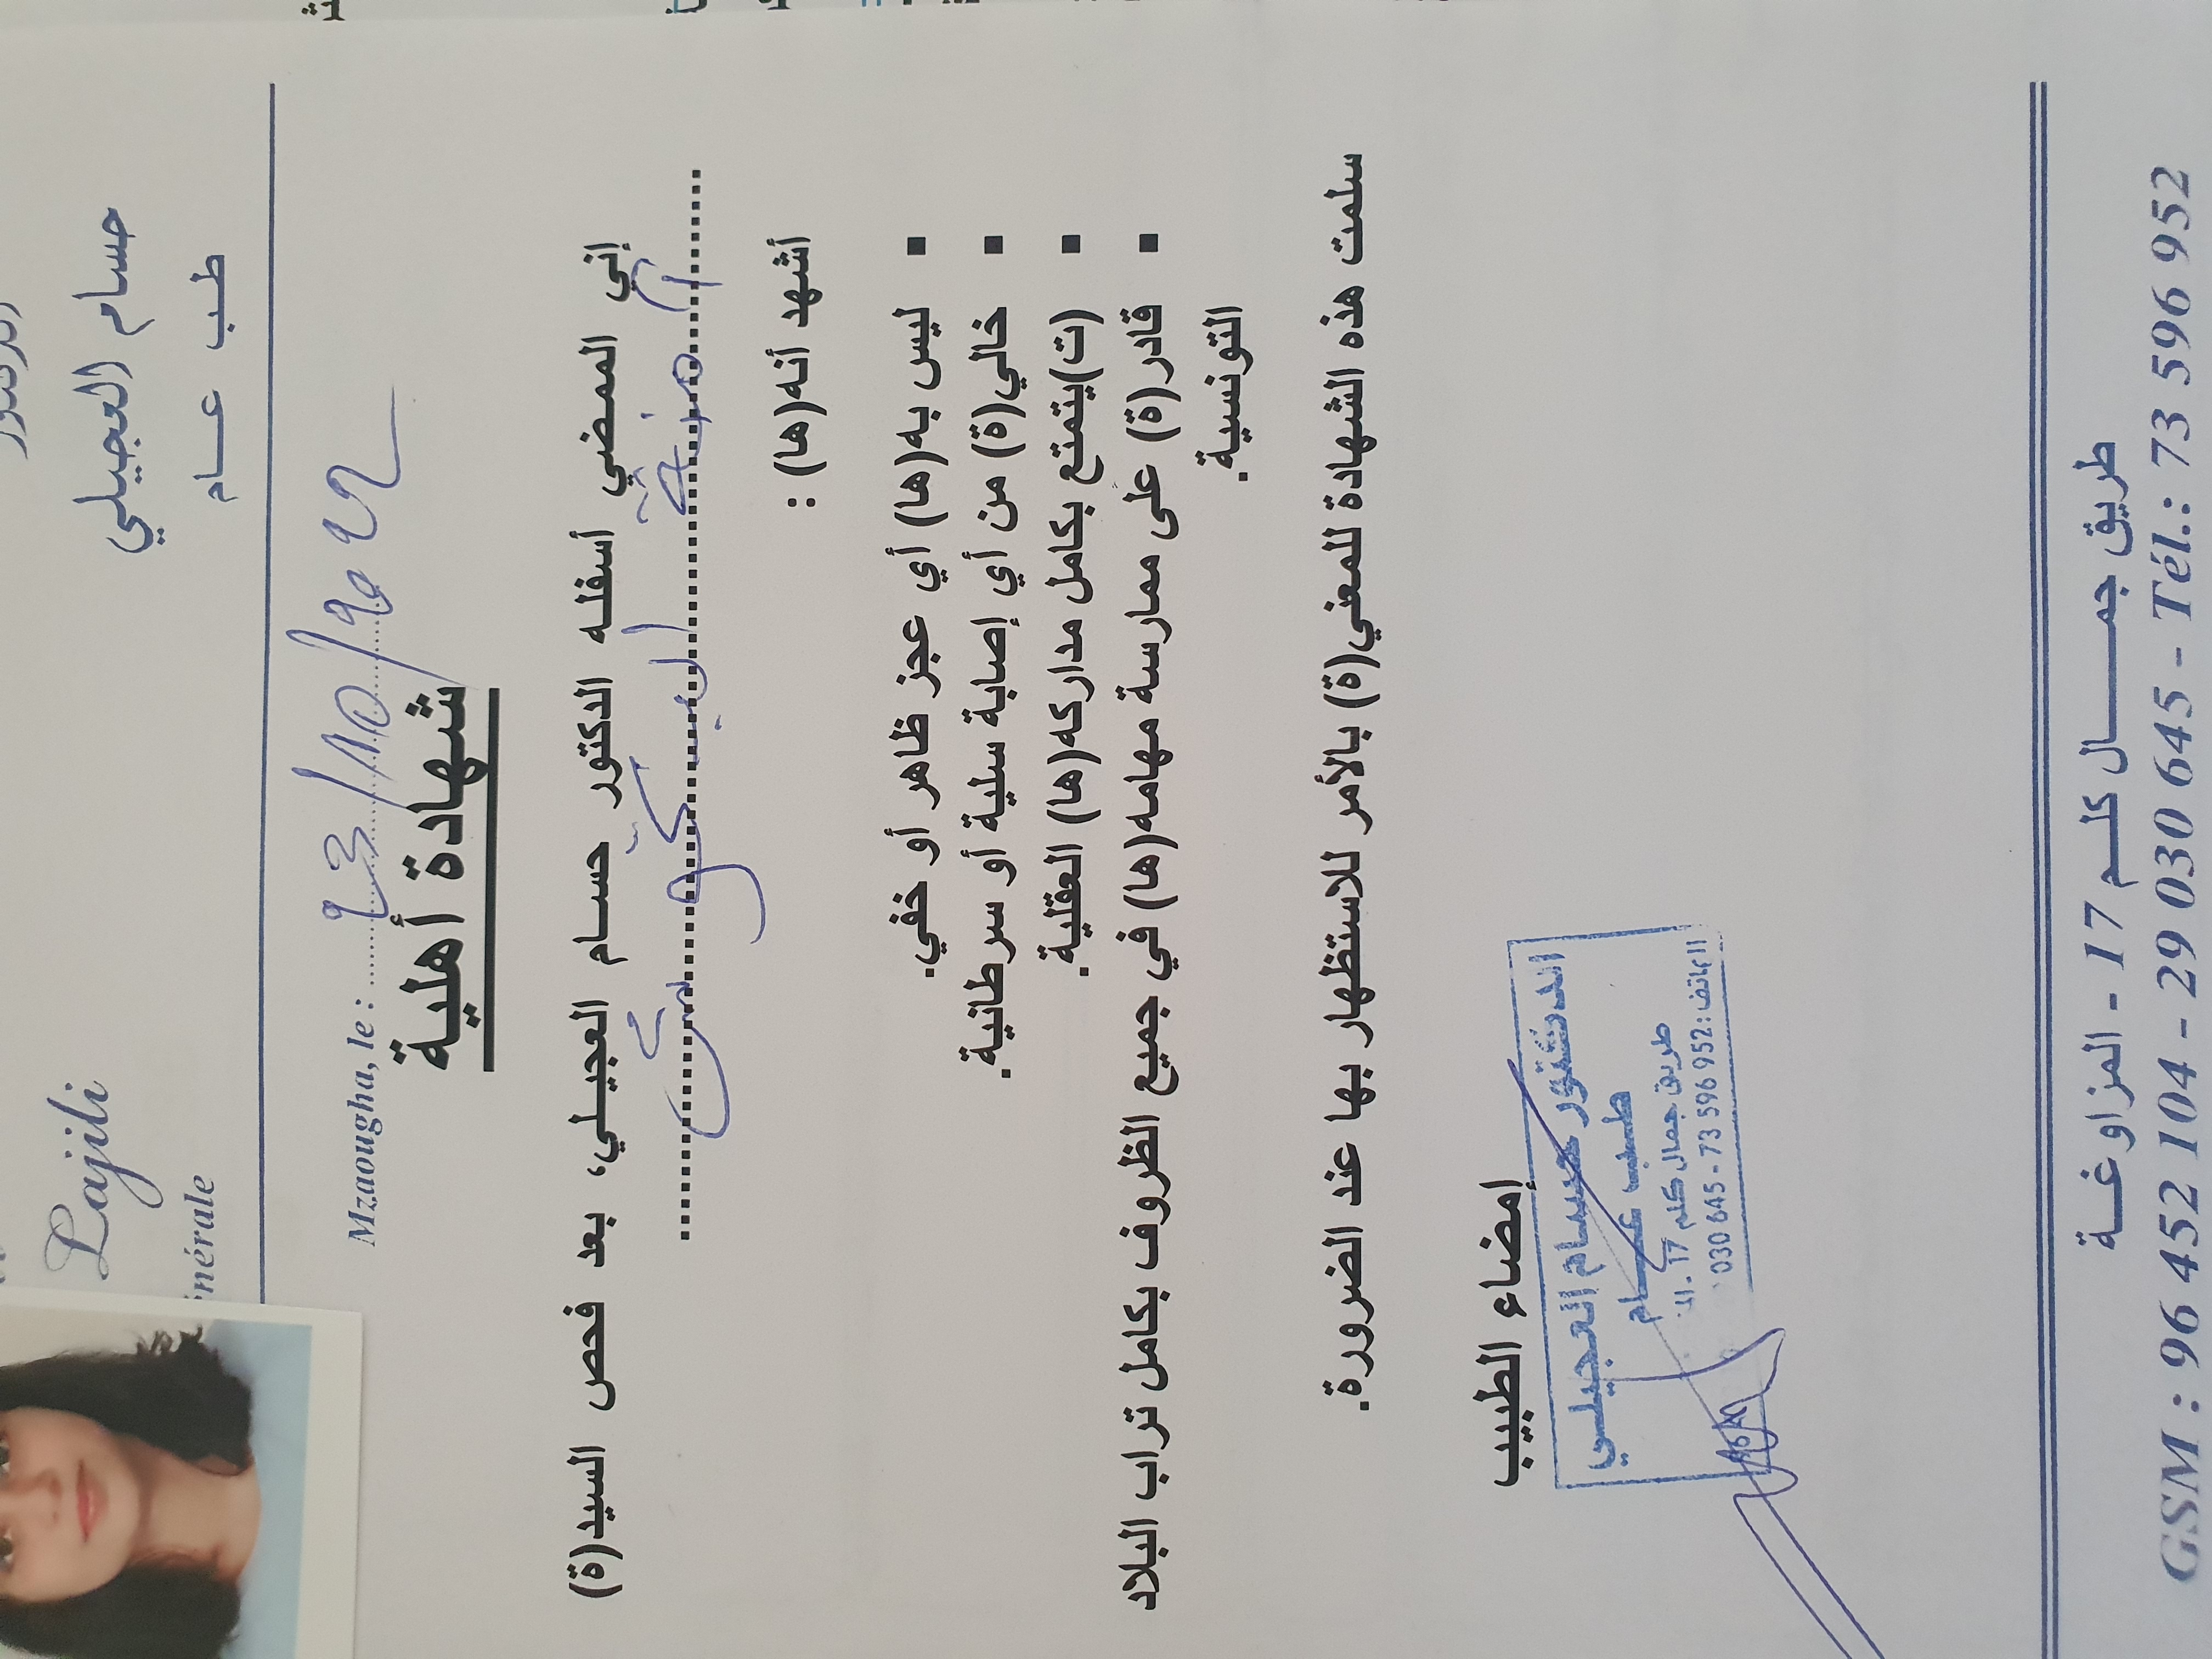 حسام العجيلي
طب عــام
Lajili
nérale
Mzaougha, le : 23/10/2022
شهادة أهلية
إني الممضي أسفله الدكتور حسـام العجيـلي، بعد فحص السيد(ة)
أمنة
أشهد أنه(ها) :
▪ ليس به(ها) أي عجز ظاهر أو خفي.
▪ خالي(ة) من أي إصابة سلية أو سرطانية.
▪ (ت)يتمتع بكامل مداركه(ها) العقلية.
▪ قادر(ة) على ممارسة مهامه(ها) في جميع الظروف بكامل تراب البلاد
التونسية.
سلمت هذه الشهادة للمعني(ة) بالأمر للاستظهار بها عند الضرورة.
إمضاء الطبيب
الدكتور حسام العجيلي
طب عام
طريق جمال كلم 17 - الم
الهاتف: 952 596 73 - 645 030
طريق جمــــال كلــم 17 - المزاوغــة
GSM : 96 452 104 - 29 030 645 - Tél.: 73 596 952